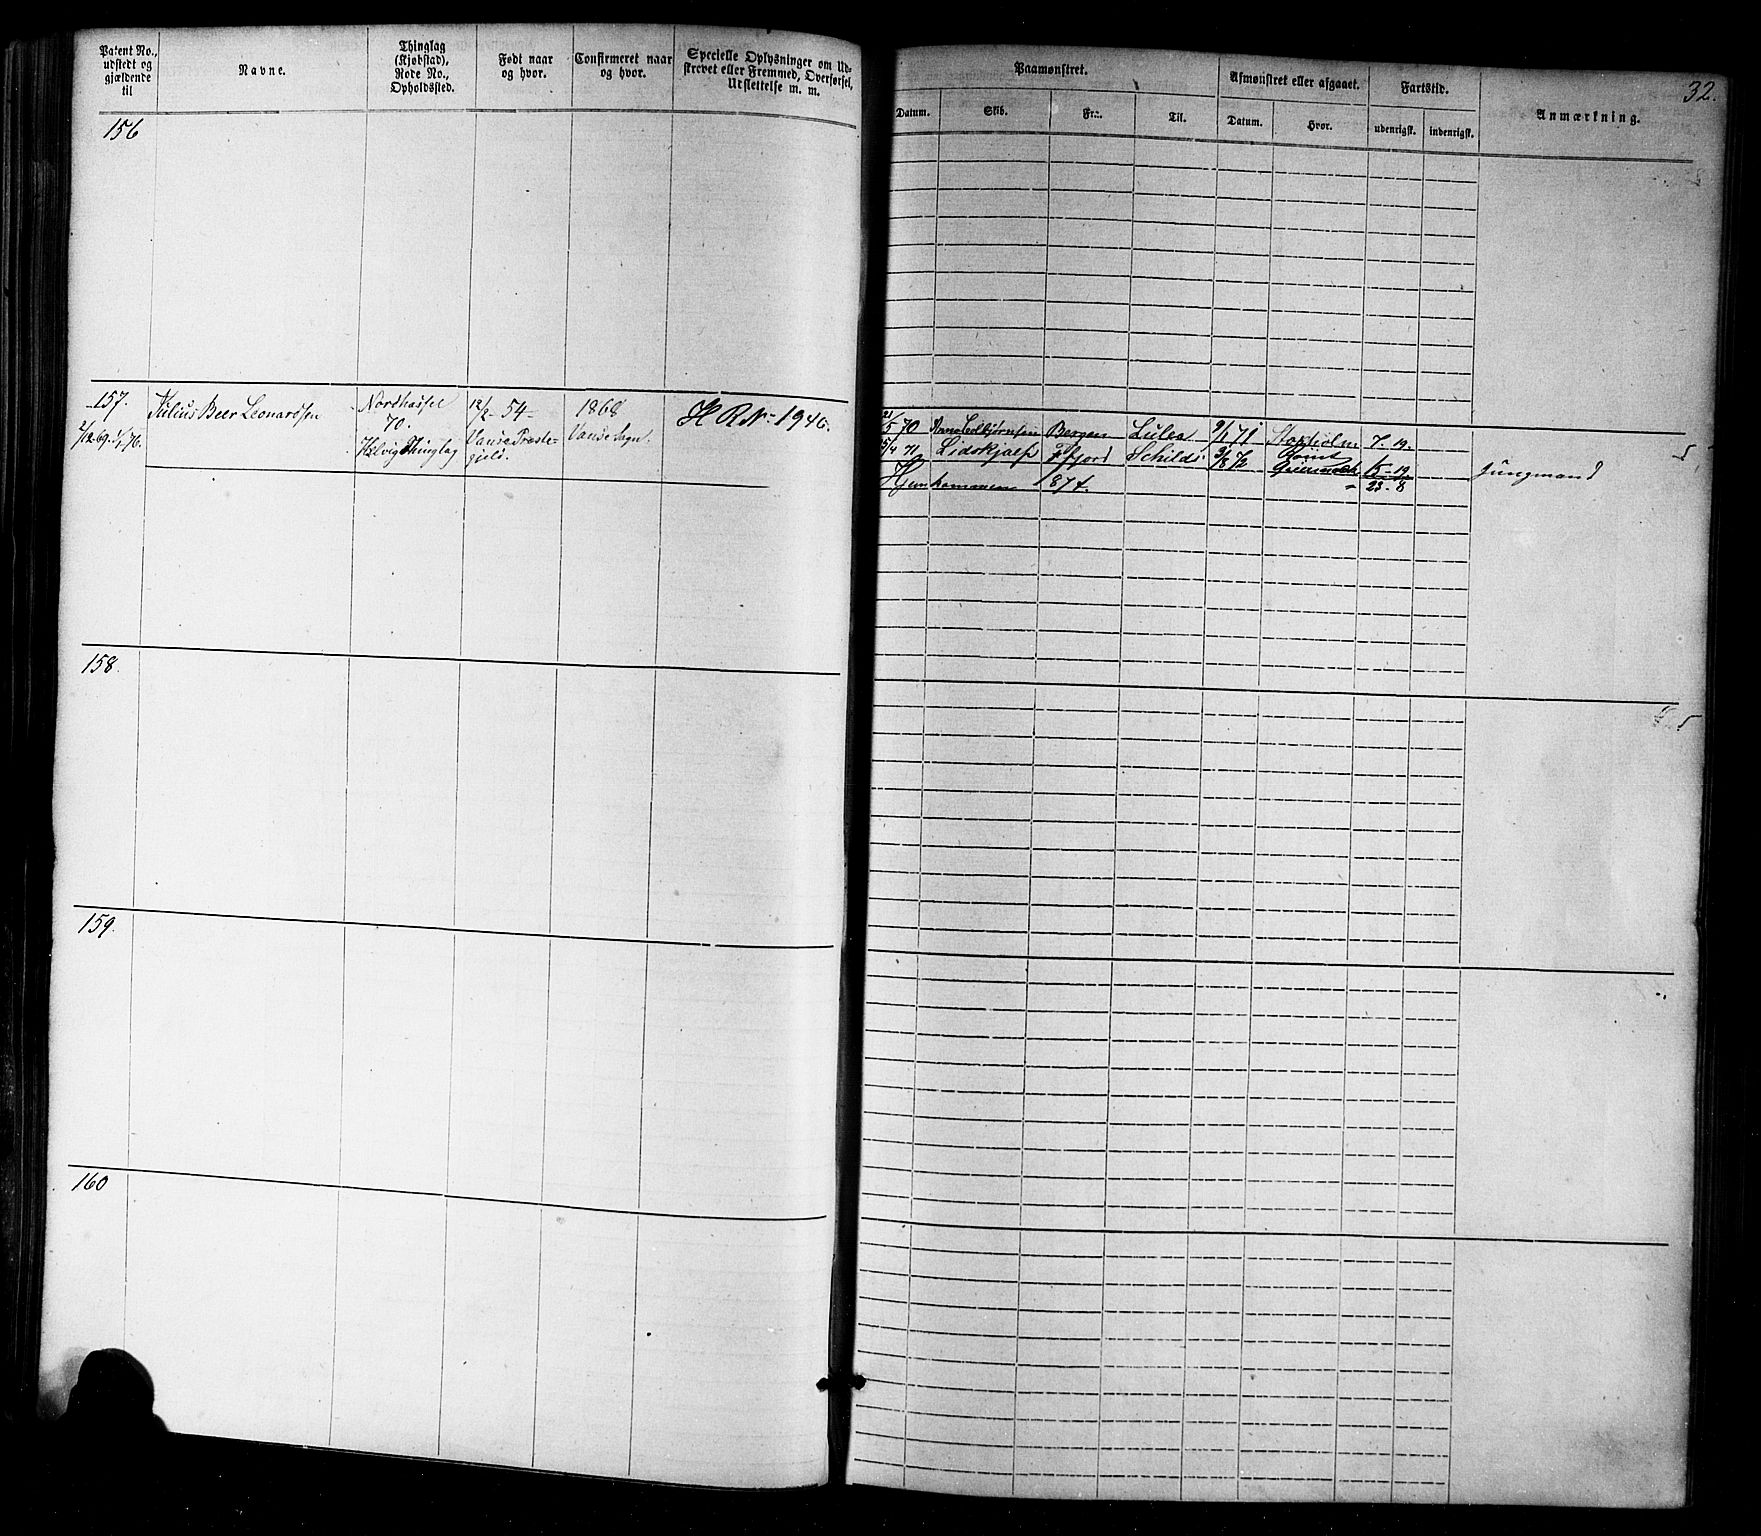 Patent No.,
udstedt og
gjældende
til
Navne.
Thinglag
(Kjøbstad),
Rode No.,
Opholdssted.
Født naar
og hvor.
Confirmeret naar
og hvor.
Specielle Oplysninger om Ud-
skrevet eller Fremmed, Overførsel,
Udslettelse m. m.
Paamønstret.
Datum.
Skib.
Fra.
Til.
Afmønstret eller afgaaet.
Datum.
Hvor.
Fartstid.
udenrigsk.
indenrigsk.
Anmærkning.
32.
156
157.
2/12 69. 1/1 76.
Julius Beer Leonardsen
Nordhassel
70.
Helvig Thinglag
12/2 - 54 -
Vanse Præste-
gjeld.
1868
Vanse Sogn.
H R No 1946.
21/5 70 Bergen Lulea 9/1 71 Stokholm 7. 19.
5/4 71 Lidskjalf Fffjord Schilds 3/8 72 15 - 19
Hjemkommen 1874. 23 - 8
Jungmand
5
158.
5
159.
160